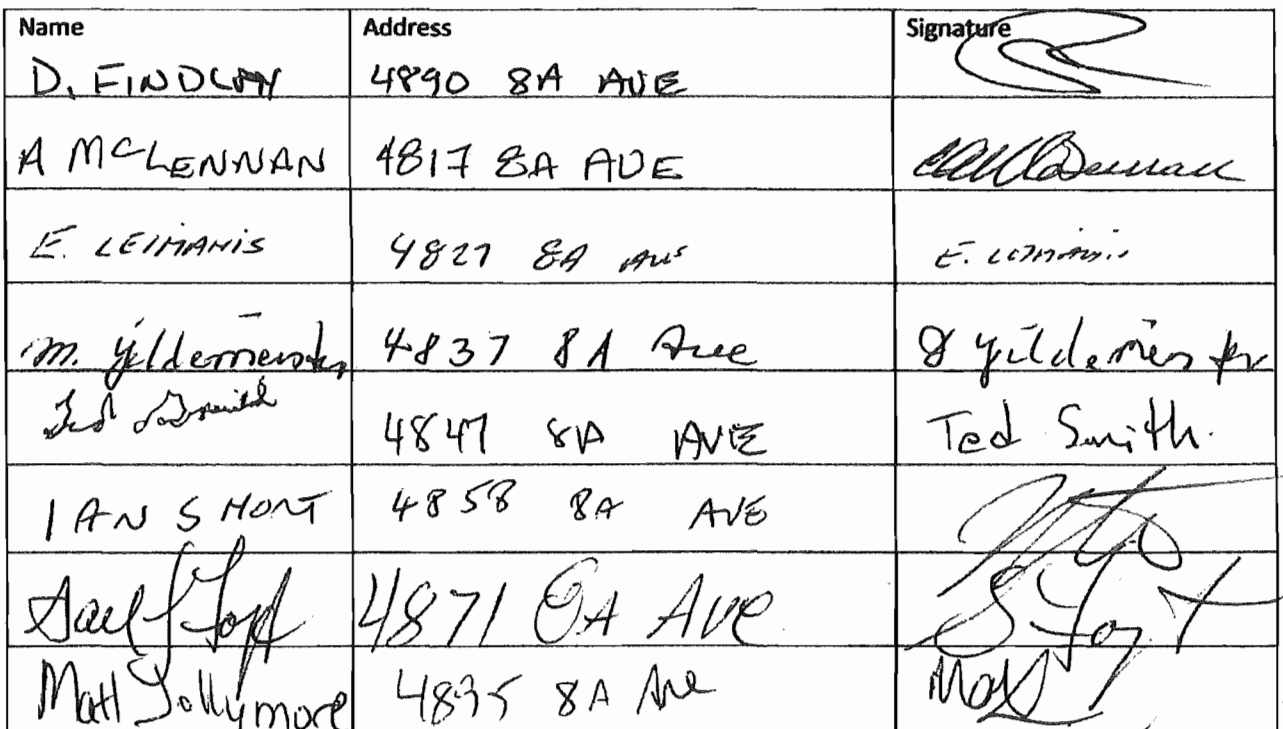 Name Address Signature
D. FINDLAY 4890 8A AVE
A MCLENNAN 4817 8A AVE
E. LEIMANIS 4827 8A Ave E. LEIMANIS
m. yildemeister 4837 8A Ave yildemeister
Ted Smith 4847 8A AVE Ted Smith.
IAN SHORT 4858 8A AVE
4871 8A Ave
Matt Jollymore 4895 8A Ave Matt